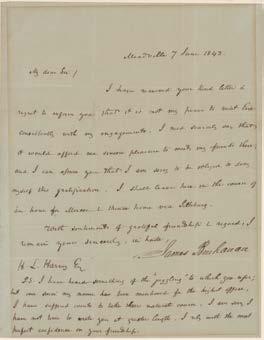 Meadville 7 June 1843.
My dear Sir/
I have received your kind letter &
regret to inform you that it is not my power to visit
consistently with my engagements. I most sincerely say that
it would afford me sincere pleasure to meet my friends there;
and I can assure you that I am sorry to be obliged to deny
myself this gratification. I shall leave here in the course of
an hour for Mercer & thence home via Pittsburg.
With sentiments of grateful friendship & regard, I
remain yours sincerely, in haste,
James Buchanan
H. L. Harvey Esq
P.S. I have heard something of the "juggling" to which you refer;
but ever since my name has been mentioned for the highest office,
I have suffered events to take their natural course. I am sorry I
have not time to write you at greater length. I rely with the most
perfect confidence on your friendship.